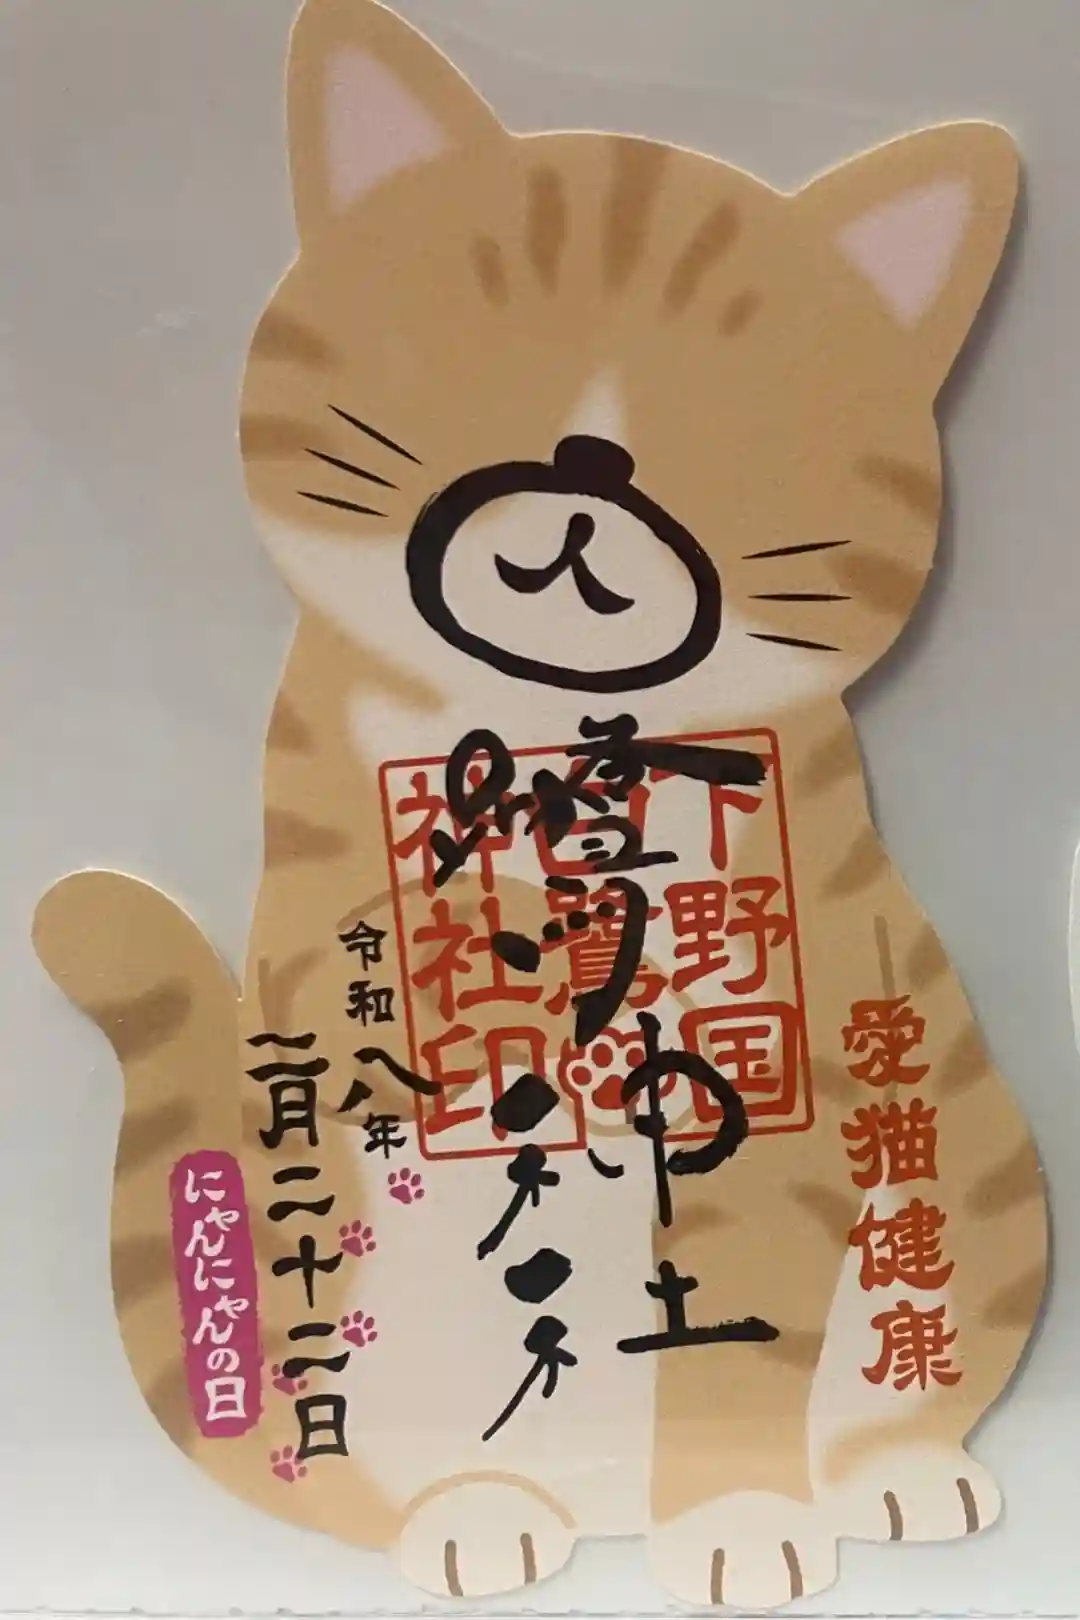 愛猫健康
下野国
白鷺
神社印
令和八年
二月二十二日
にゃんにゃんの日